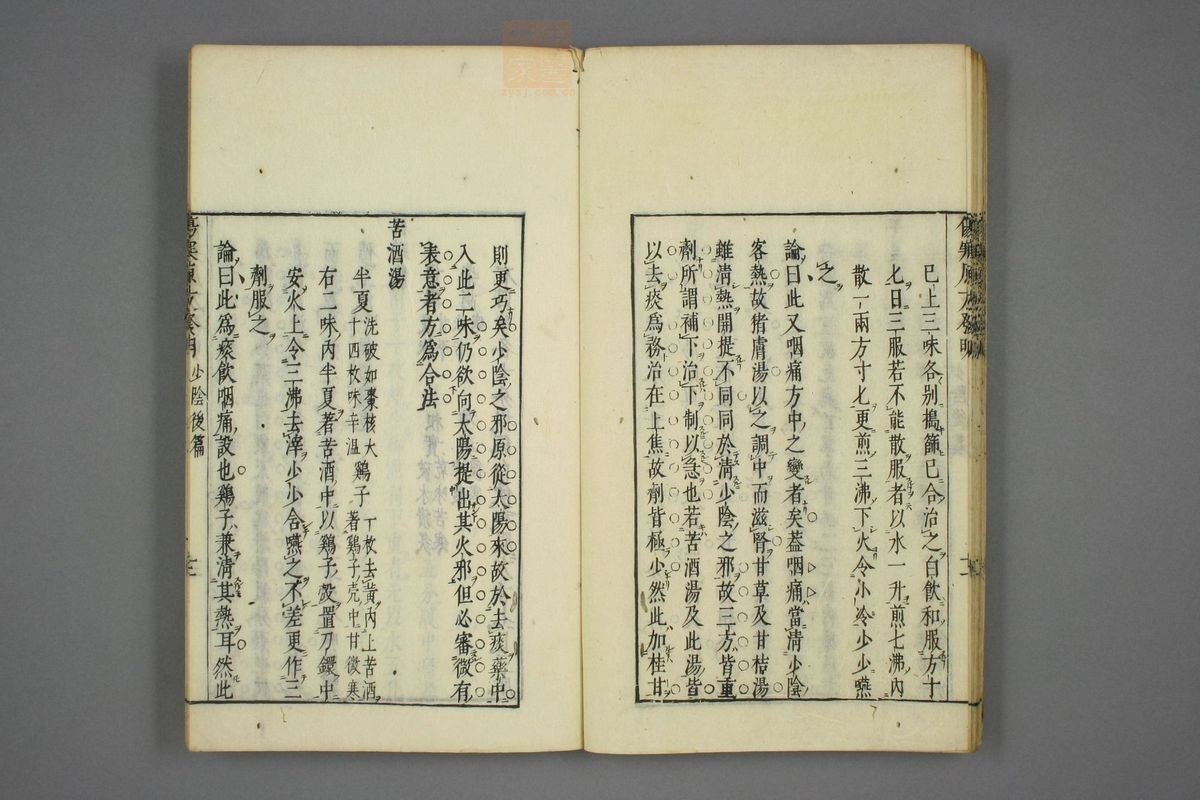 巳上三味各别搗篩巳合治之白飲和服方十
匕日三服若不能散服者以水一升煎七沸內
散一兩方寸匕更煎三沸下火令小冷少少嚥
之
論曰此又咽痛方中之變者矣葢咽痛當清少陰
客熱故猪膚湯以之調中而滋腎甘草及甘桔湯
雖清熱開提不同同於清少陰之邪故三方皆重
劑所謂補下治下制以急也若苦酒湯及此湯皆
以去痰爲務治在上焦故劑皆極少然此加桂甘
則更巧矣少陰之邪原從太陽來故於去痰藥中
入此二味仍欲向太陽提出其火邪但必審微有
表意者方爲合法
苦酒湯
半夏洗破如棗核大十四枚味辛溫 鷄子一枚去黃內上苦酒著鷄子壳中甘微寒
右二味內半夏著苦酒中以鷄子殼置刀鐶中
安火上令三沸去滓少少含嚥之不差更作三
劑服之
論曰此爲痰飲咽痛設也鷄子兼清其熱耳然此
少陰後篇
zysj.com.cn